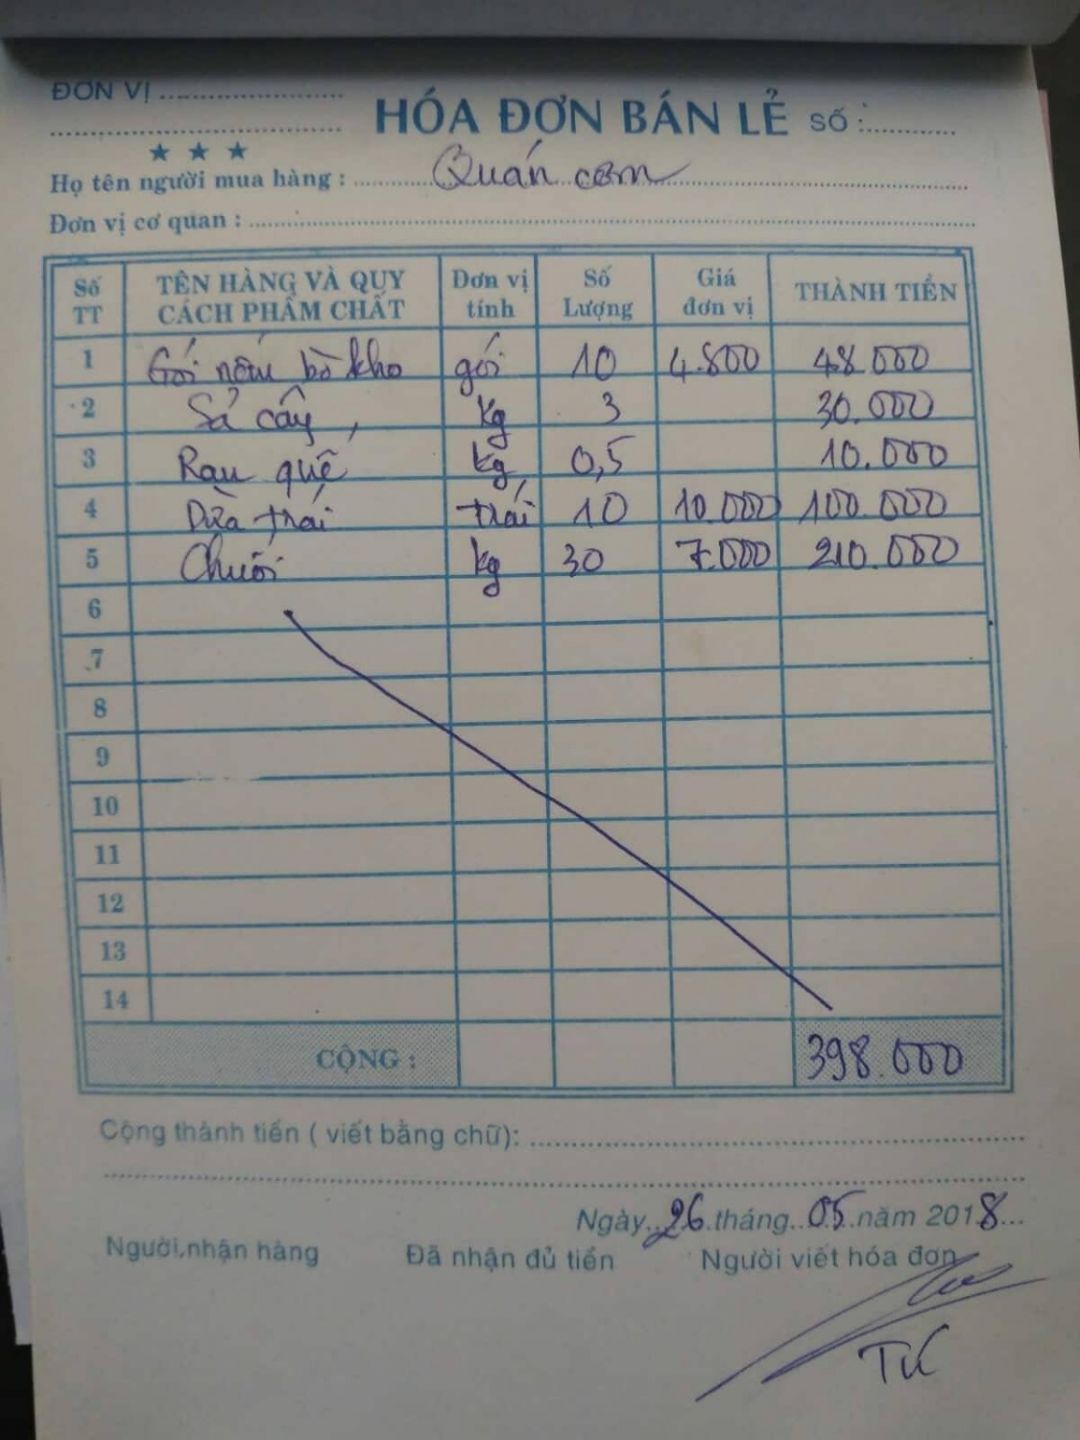 ĐƠN VỊ ........................
HÓA ĐƠN BÁN LẺ SỐ :............
★ ★ ★
Họ tên người mua hàng : Quán cơm
Đơn vị cơ quan : ........................
Số TT TÊN HÀNG VÀ QUY CÁCH PHẨM CHẤT Đơn vị tính Số Lượng Giá đơn vị THÀNH TIỀN
1 Gói nấu bò kho gói 10 4.800 48.000
2 Sả cây kg 3 30.000
3 Rau quế kg 0,5 10.000
4 Dừa trái trái 10 10.000 100.000
5 Chuối kg 30 7.000 210.000
6
7
8
9
10
11
12
13
14
CỘNG : 398.000
Cộng thành tiền ( viết bằng chữ): ........................
Ngày 26 tháng 05 năm 2018
Người nhận hàng Đã nhận đủ tiền Người viết hóa đơn